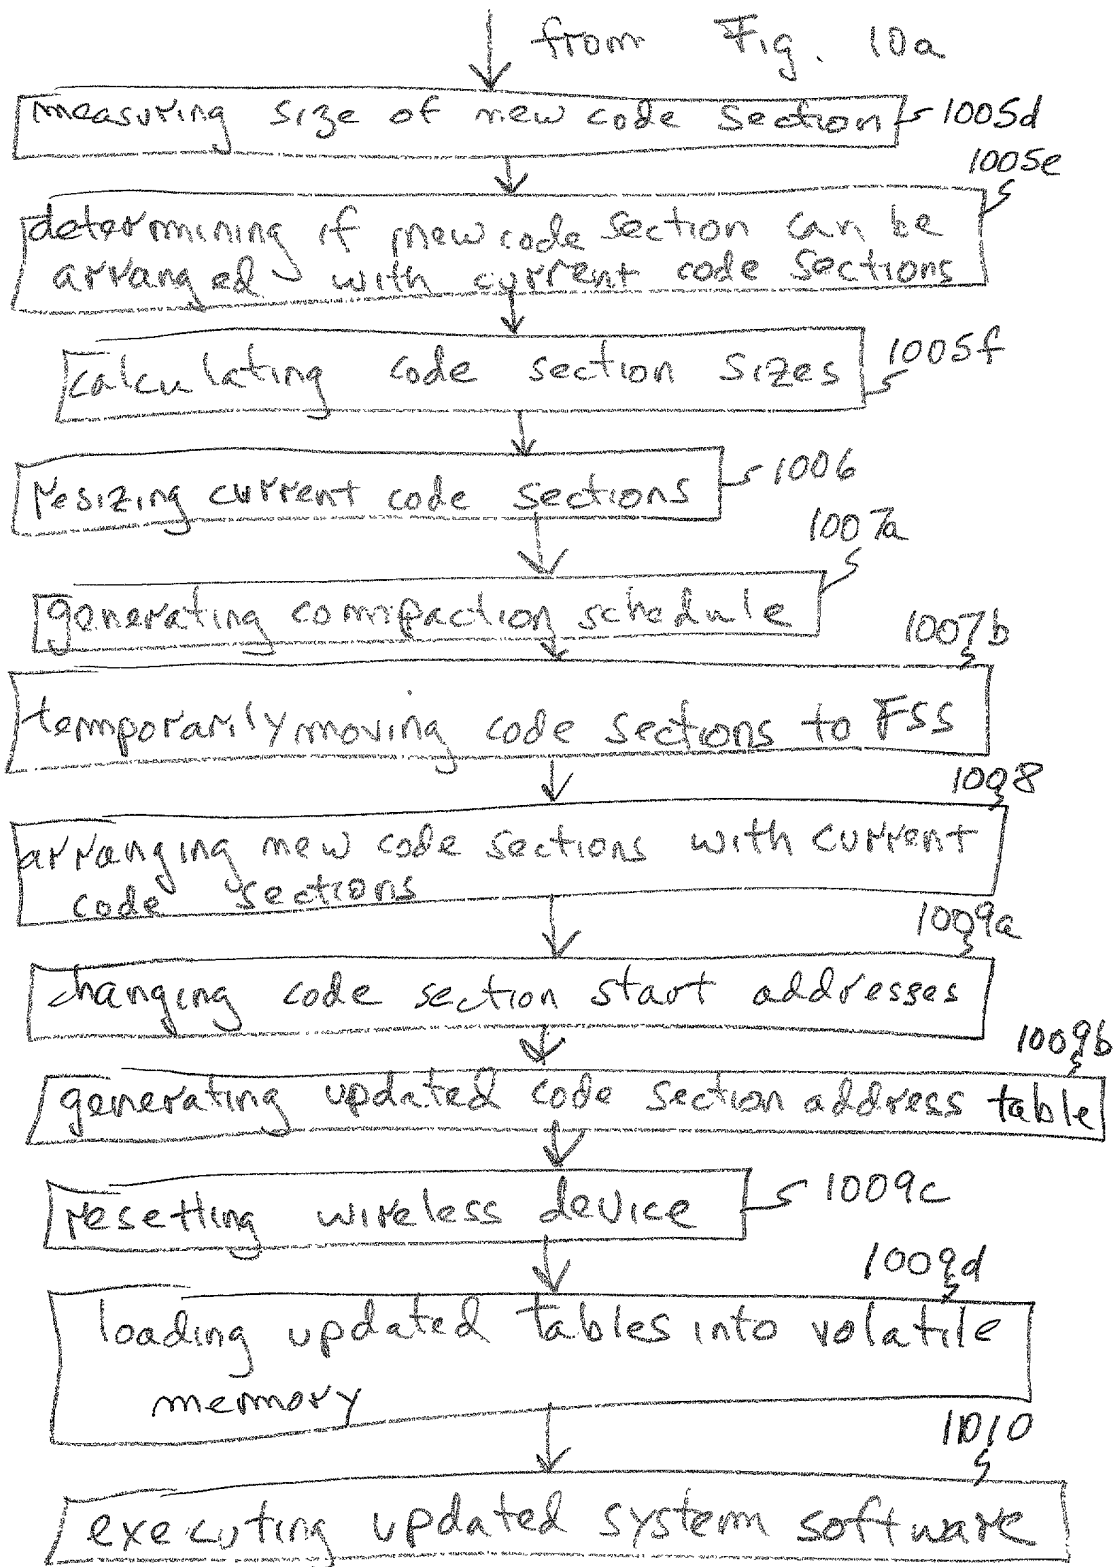 from Fig. 10a
measuring size of new code section 1005d
1005e
determining if new code section can be
arranged with current code sections
calculating code section sizes 1005f
resizing current code sections 1006
1007a
generating compaction schedule
1007b
temporarily moving code sections to FSS
1008
arranging new code sections with current
code sections
1009a
changing code section start addresses
1009b
generating updated code section address table
resetting wireless device 1009c
1009d
loading updated tables into volatile
memory
1010
executing updated system software